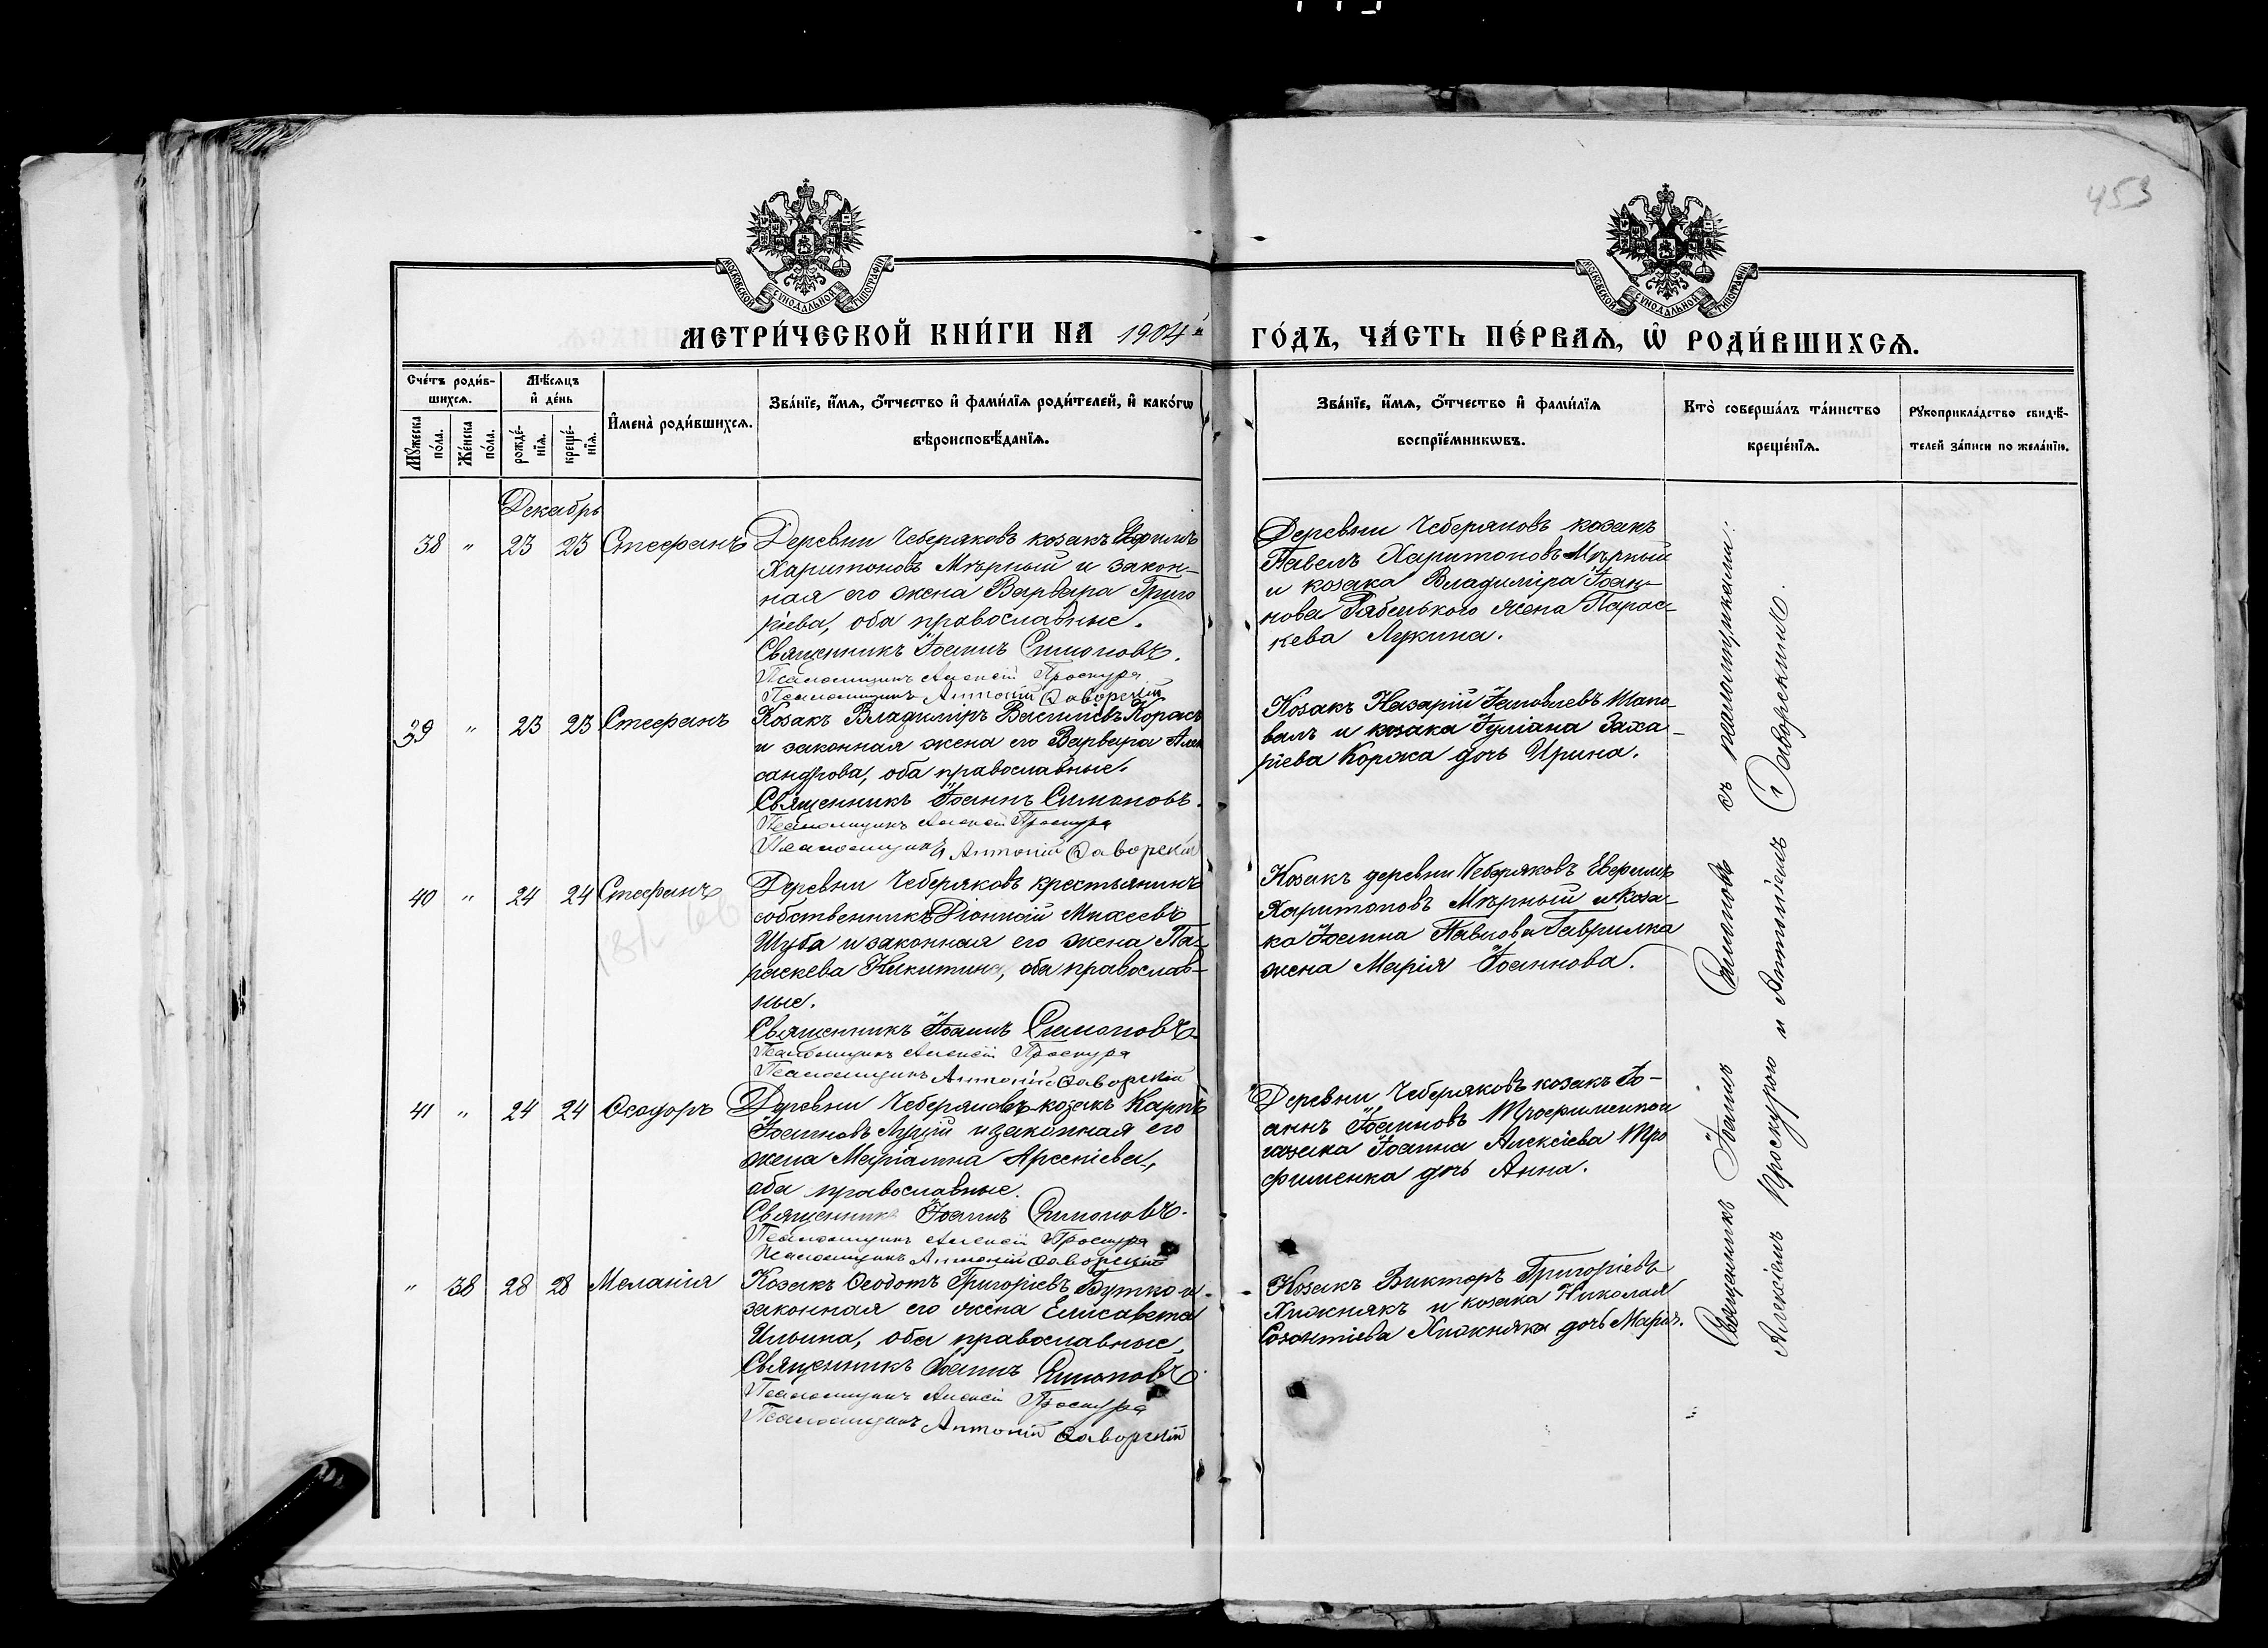 453
МОСКОВСКОЙ СУНОДАЛЬНОЙ ТИПОГРАФІИ
МОСКОВСКОЙ СУНОДАЛЬНОЙ ТИПОГРАФІИ
МЕТРИ́ЧЕСКОЙ КНИ́ГИ НА 1904й ГО́ДЪ, ЧА́СТЬ ПЕ́РВАѦ, Ѡ РОДИ́ВШИХСѦ.
Сче́тъ роди́в-
шихсѧ.
Мꙋ́жеска
по́ла.
Же́нска
по́ла.
Мѣ́сѧцъ
и҆ де́нь
рожде́-
нїѧ.
креще́-
нїѧ.
И҆мена̀ роди́вшихсѧ.
Зва́нїе, и҆́мѧ, ѻ҆́тчество и҆ фами́лїѧ роди́телей, и҆ како́гѡ
вѣроисповѣ́данїѧ.
Зва́нїе, и҆́мѧ, ѻ҆́тчество и҆ фами́лїѧ
воспрїе́мникѡвъ.
Кто̀ соверша́лъ та́инство
креще́нїѧ.
Рꙋкоприкла́дство свидѣ́-
телей за́писи по жела́нїю.
Декабрь
38 " 23 23 Стефанъ
Деревни Чеберяковъ козакъ Ефимъ
Харитоновъ Мѣрный и закон-
ная его жена Варвара Григо
ріева, оба православные.
Священникъ Іоаннъ Симоновъ.
Псаломщикъ Алексій Проскура
Псаломщикъ Антоній Яворскій
Деревни Чеберяковъ козакъ
Павелъ Харитоновъ Мѣрный
и козака Владиміра Іоан-
нова Рябенького жена Парас-
кева Лукина.
39 " 23 23 Стефанъ
Козакъ Владиміръ Васильевъ Корасъ
и законная жена его Варвара Алек
сандрова, оба православные.
Священникъ Іоаннъ Симоновъ.
Псаломщикъ Алексій Проскура
Псаломщикъ Антоній Яворскій
Козакъ Назарій Іаковлевъ Шапо-
валъ и козака Іуліана Заха-
ріева Коржа дочь Ирина.
40 " 24 24 Стефанъ
Деревни Чеберяковъ крестьянинъ
собственникъ Діонисій Михеевъ
Шуба и законная его жена Па-
раскева Никитина, оба православ-
ные.
Священникъ Іоаннъ Симоновъ
Псаломщикъ Алексій Проскура
Псаломщикъ Антоній Яворскій
Козакъ деревни Чеберяковъ Ефимъ
Харитоновъ Мѣрный и коза-
ка Іоанна Павлова Гаврилка
жена Марія Іоаннова.
41 " 24 24 Ѳеодоръ
Деревни Чеберяковъ козакъ Карпъ
Іоанновъ Луцій и законная его
жена Маріамна Арсеніева,
оба православные.
Священникъ Іоаннъ Симоновъ.
Псаломщикъ Алексій Проскура
Псаломщикъ Антоній Яворскій
Деревни Чеберяковъ козакъ Іо-
аннъ Іоанновъ Трофименко и
козака Іоанна Алексіева Тро
фименка дочь Анна.
" 38 28 28 Меланія
Козакъ Ѳеодотъ Григоріевъ Бутко и
законная его жена Елисавета
Ильина, оба православные,
Священникъ Іоаннъ Симоновъ.
Псаломщикъ Алексій Проскура
Псаломщикъ Антоній Яворскій
Козакъ Викторъ Григоріевъ
Хижнякъ и козака Николая
Созонтіева Хижняка дочь Марія.
Священникъ Іоаннъ Симоновъ съ псаломщиками:
Алексіемъ Проскурою и Антоніемъ Яворскимъ.